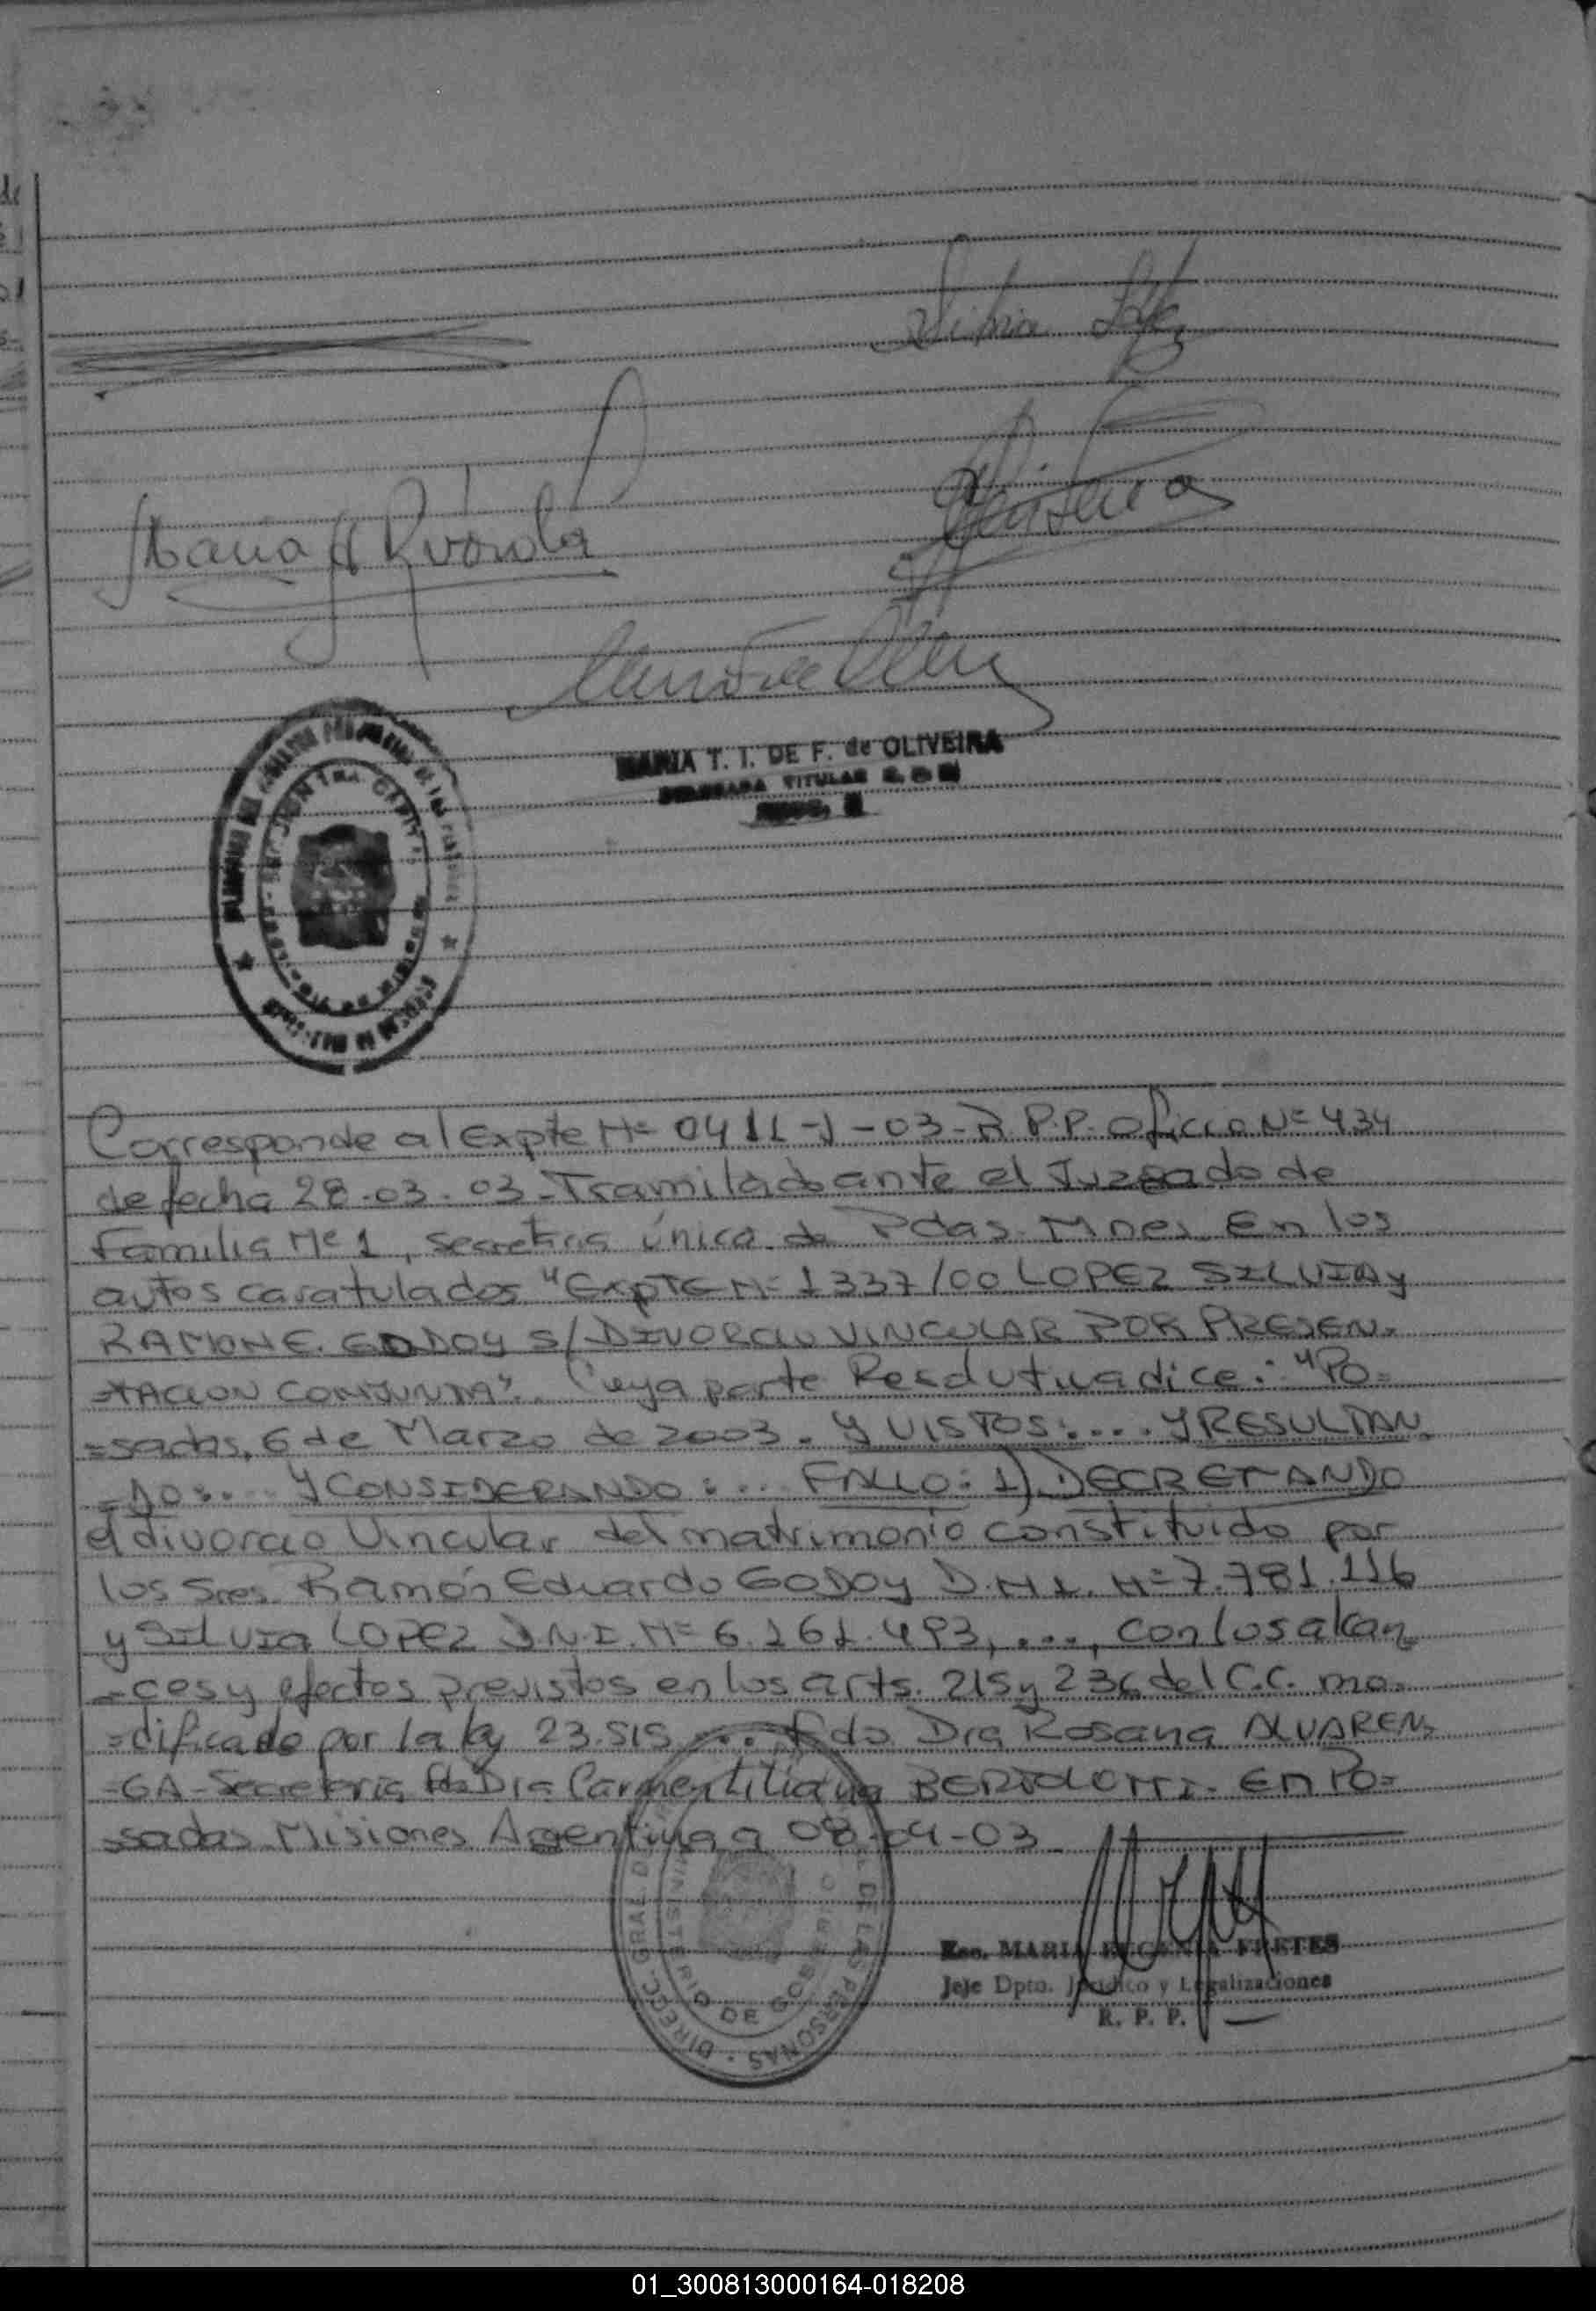 Silvia López
Maria
MARIA T. I. DE F. de OLIVEIRA
TITULAR
Corresponde al Expte Nº 0411-J-03-R.P.P. Oficio Nº 434
de fecha 28-03-03-Tramitado ante el Juzgado de
Familia Nº 1, Secretria Única de Pdas. Mnes. En los
autos caratulados "Expte Nº 1337/00 LOPEZ SILVIA y
RAMON E. GODOY S/DIVORCIO VINCULAR POR PRESEN-
=TACION CONJUNTA". Cuya parte Resolutiva dice: "Po=
=sadas, 6 de Marzo de 2003. Y VISTOS:.... Y RESULTAN
=DO:.... Y CONSIDERANDO:... FALLO: 1) DECRETANDO
el divorcio Vincular del matrimonio constituido por
los Sres. Ramón Eduardo GODOY D.N.I. Nº 7.781.116
y SILVIA LOPEZ D.N.I. Nº 6.161.493, ..., con los alcan=
=ces y efectos previstos en los arts. 215 y 236 del C.C. mo=
=dificado por la ley 23.515 ... Fdo Dra Rosana ALVAREN=
-GA-Secretaria, Fdo Dra Carmen Liliana En Po=
=sadas Misiones Argentina a 08-04-03
Esc. MARIA EUGENIA FRETES
Jefe Dpto. Jurídico y Legalizaciones
R. P. P.
DIRECC. GRAL. D DE LAS PERSONAS
MINISTERIO DE GOBIERNO
01_300813000164-018208